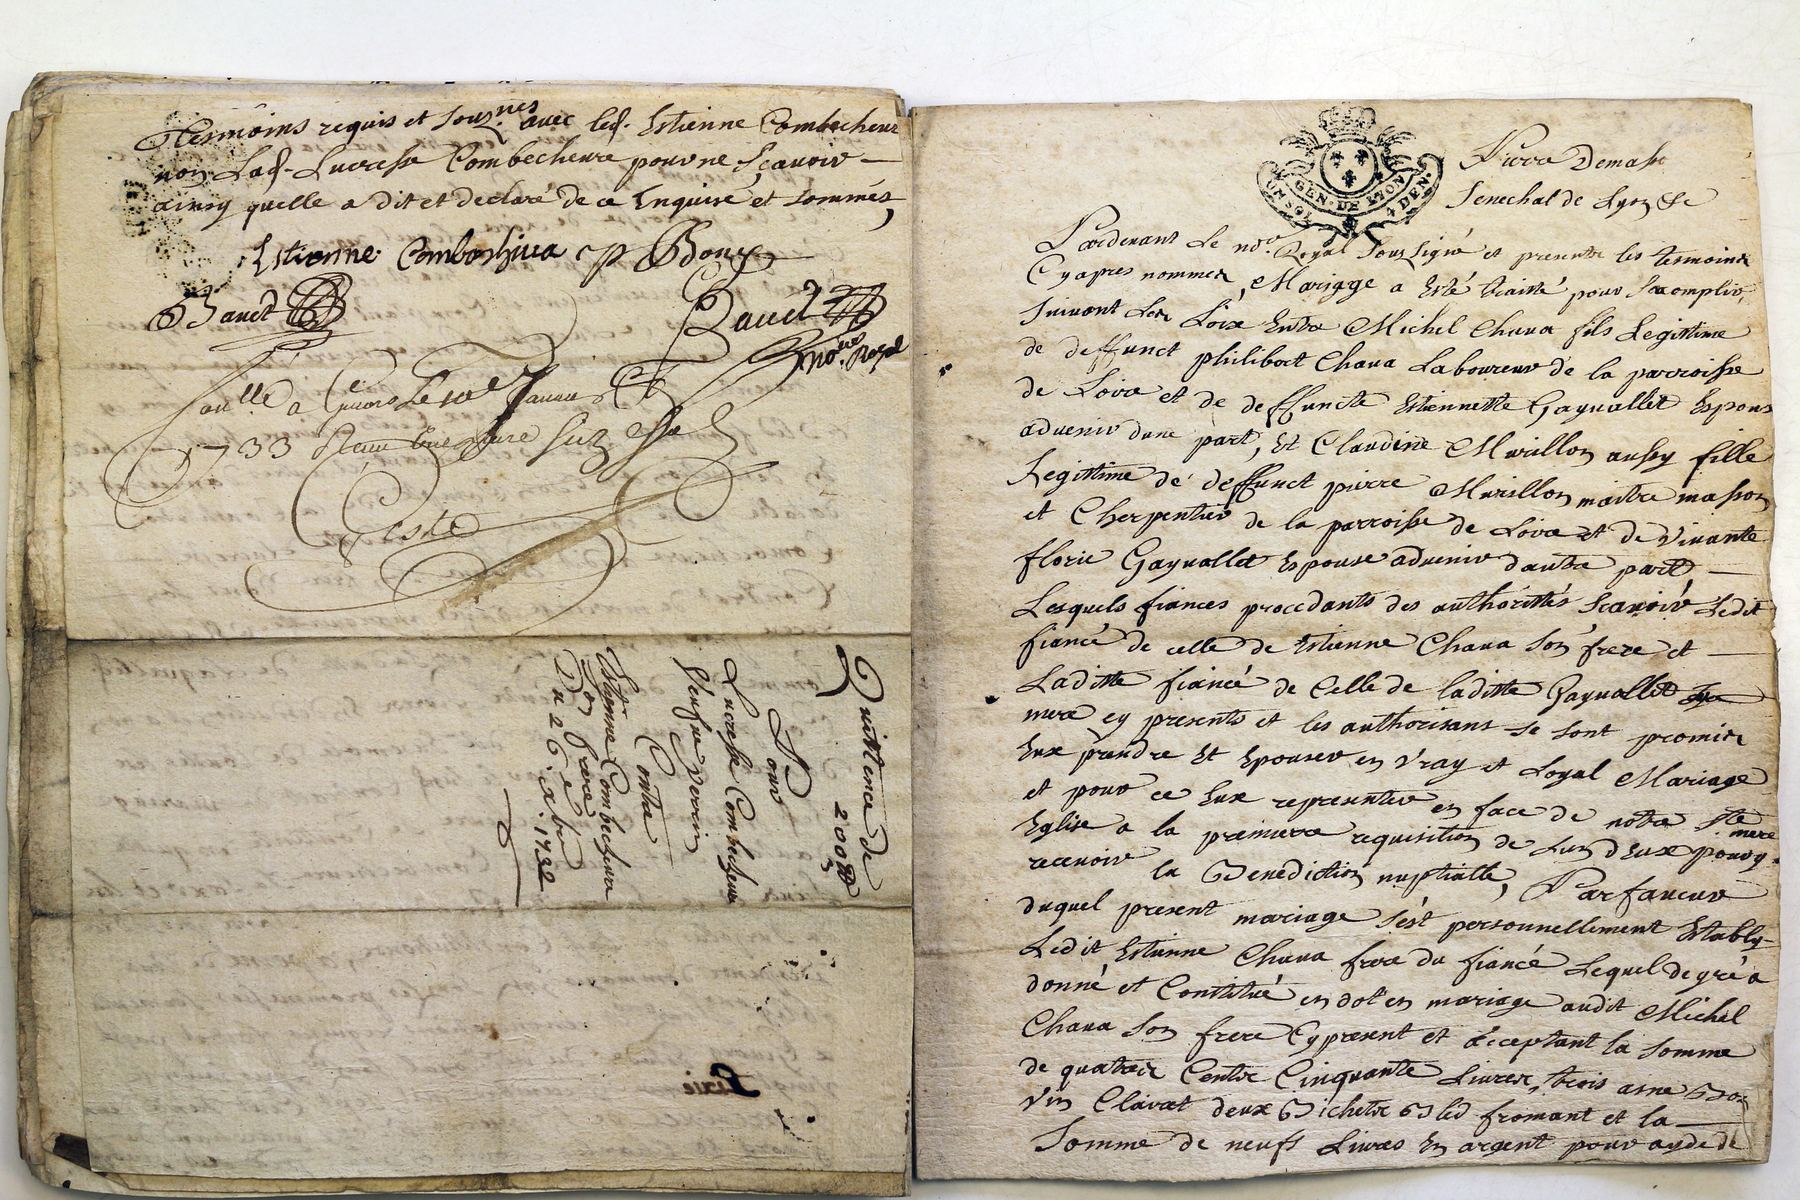 Tesmoins requis et souz.nes avec led. Estienne Combecheure
non Lad. Lucresse Combecheure pour ne sçauoir
ainsy quelle a dit et declaré de ce Enquire et sommés,
Estienne Combashiua
Bauet
Bauet
no.re Royal
le 10e Janvier
1733
Ceste
Quittence de
200
Pour
Lucresse Combecheure
Veufue perrin
Contre
Estienne Combecheure
son frere
Du 26.e x.bre 1732
GEN. DE LYON
UN SOL 4 DEN.
Pierre Demasso
Senechal de Lyon &c
Pardeuant Le no.re Royal souzsigné et presents les tesmoins
Cyapres nommez, Mariage a Esté traitté pour Saccomplir,
suiuant Les Loix Entre Michel Chaua fils Legittime
de deffunct philibert Chaua Laboureur de la parroisse
de Loire et de deffuncte Estiennette Gaynallet Espoux
aduenir dune part, Et Claudine Murillon aussy fille
Legittime de deffunct pierre Murillon maitre masson
et Cherpentier de la parroisse de Loire et de viuante
florie Gaynallet Espouse aduenir dautre part
Lesquels fiancés procedants des authorittés Scauoir Ledit
fiancé de celle de Estienne Chaua son frere et
Laditte fiancé de Celle de laditte Gaynallet
mere cy presents et les authorisant se sont promis
Eux prendre Et Epouser en vray et Loyal Mariage
et pour ce Eux representer en face de notre Ste mere
Eglise a la premiere requisition de Lun d'Eux pour y
receuoir la Benediction nuptialle, Par faueur
duquel present mariage s'est personnellement Estably
Ledit Estienne Chaua frere du fiancé Lequel de gré a
donné et Constitué en dot en mariage audit Michel
Chaua son frere Cypresent et acceptant la somme
de quatre Cents Cinquante Liures, trois asne Bon
vin Clairet deux Bichets Bled fromant et la
Somme de neufs Liures En argent pour ayde de